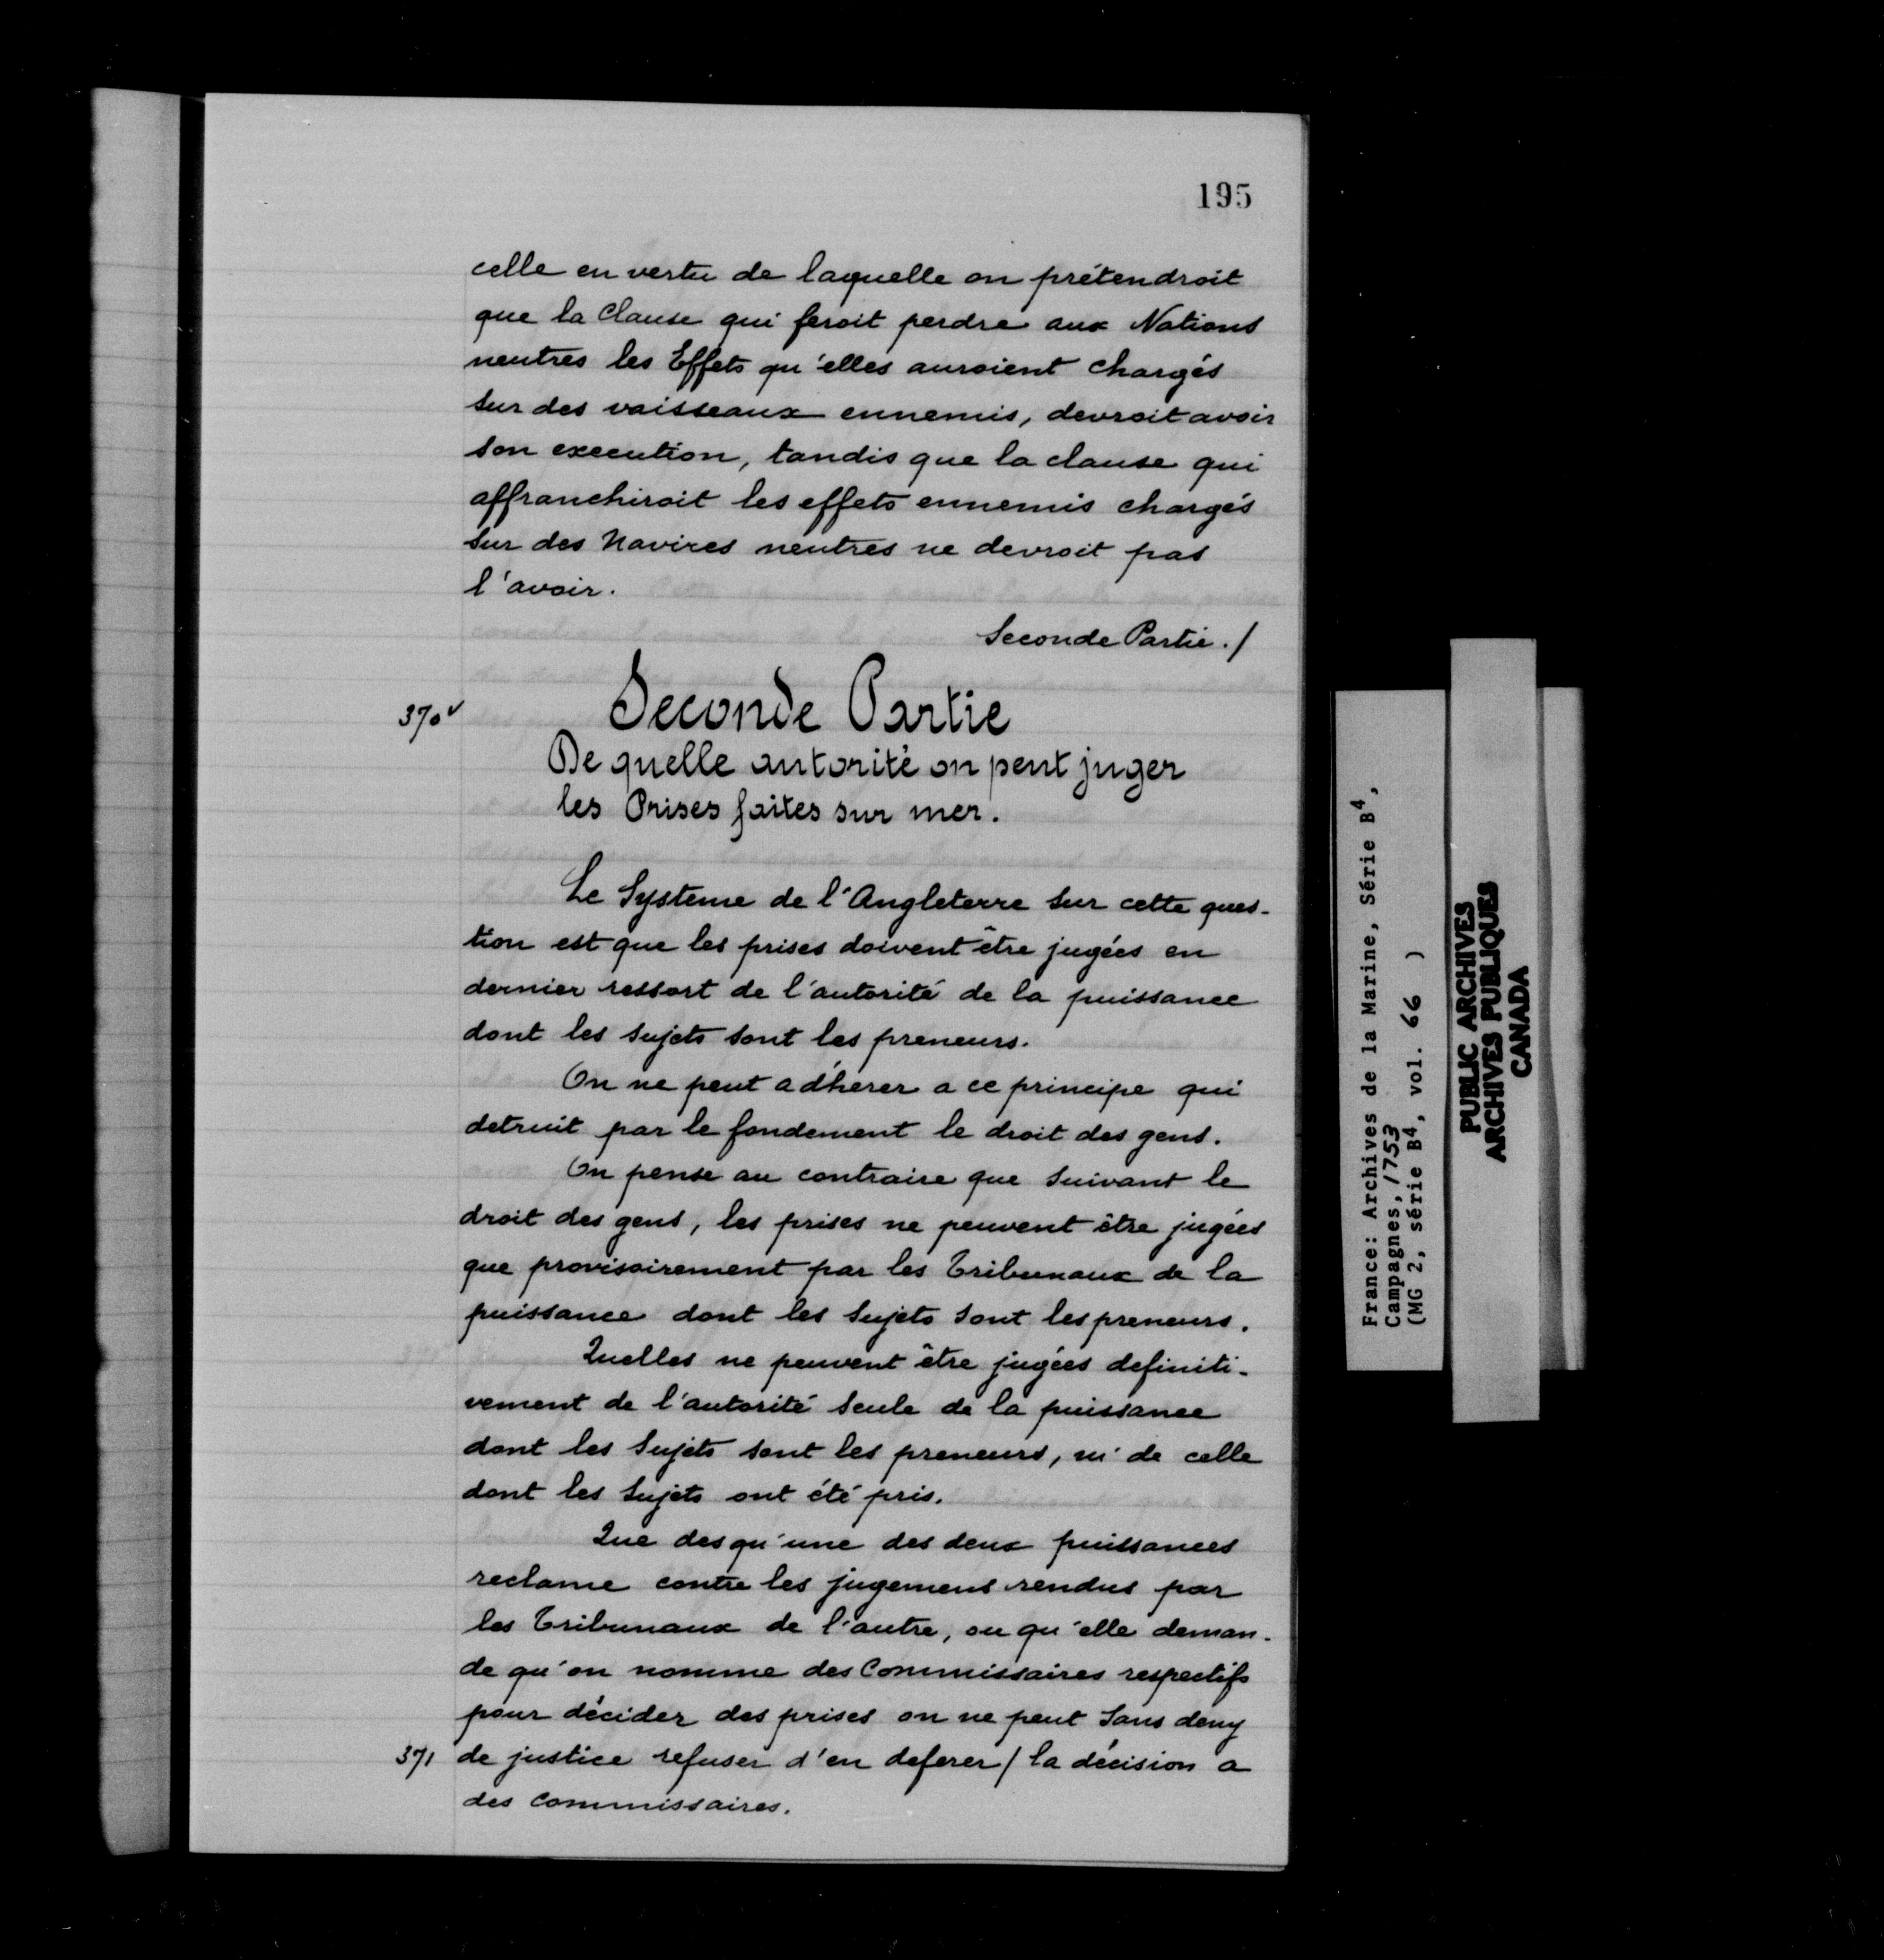 195
celle en vertu de laquelle on prétendroit
que la Clause qui feroit perdre aux Nations
neutres les Effets qu'elles auroient chargés
sur des vaisseaux ennemis, devroit avoir
son execution, tandis que la clause qui
affranchiroit les effets ennemis chargés
sur des Navires neutres ne devroit pas
l'avoir.
Seconde Partie./
370v Seconde Partie
De quelle autorité on peut juger
les Prises faites sur mer.
Le Systeme de l'Angleterre sur cette ques-
tion est que les prises doivent être jugées en
dernier ressort de l'autorité de la puissance
dont les sujets sont les preneurs.
On ne peut adherer a ce principe qui
detruit par le fondement le droit des gens.
On pense au contraire que suivant le
droit des gens, les prises ne peuvent être jugées
que provisoirement par les Tribunaux de la
puissance dont les sujets sont les preneurs.
Quelles ne peuvent être jugées definiti-
vement de l'autorité seule de la puissance
dont les sujets sont les preneurs, ni de celle
dont les sujets ont été pris.
Que desqu'une des deux puissances
reclame contre les jugemens rendus par
les Tribunaux de l'autre, ou qu'elle deman-
de qu'on nomme des Commissaires respectifs
pour décider des prises on ne peut sans deny
371 de justice refuser d'en deferer / la décision a
des Commissaires.
France: Archives de la Marine, Série B4,
Campagnes, 1753
(MG 2, série B4, vol. 66 )
PUBLIC ARCHIVES
ARCHIVES PUBLIQUES
CANADA